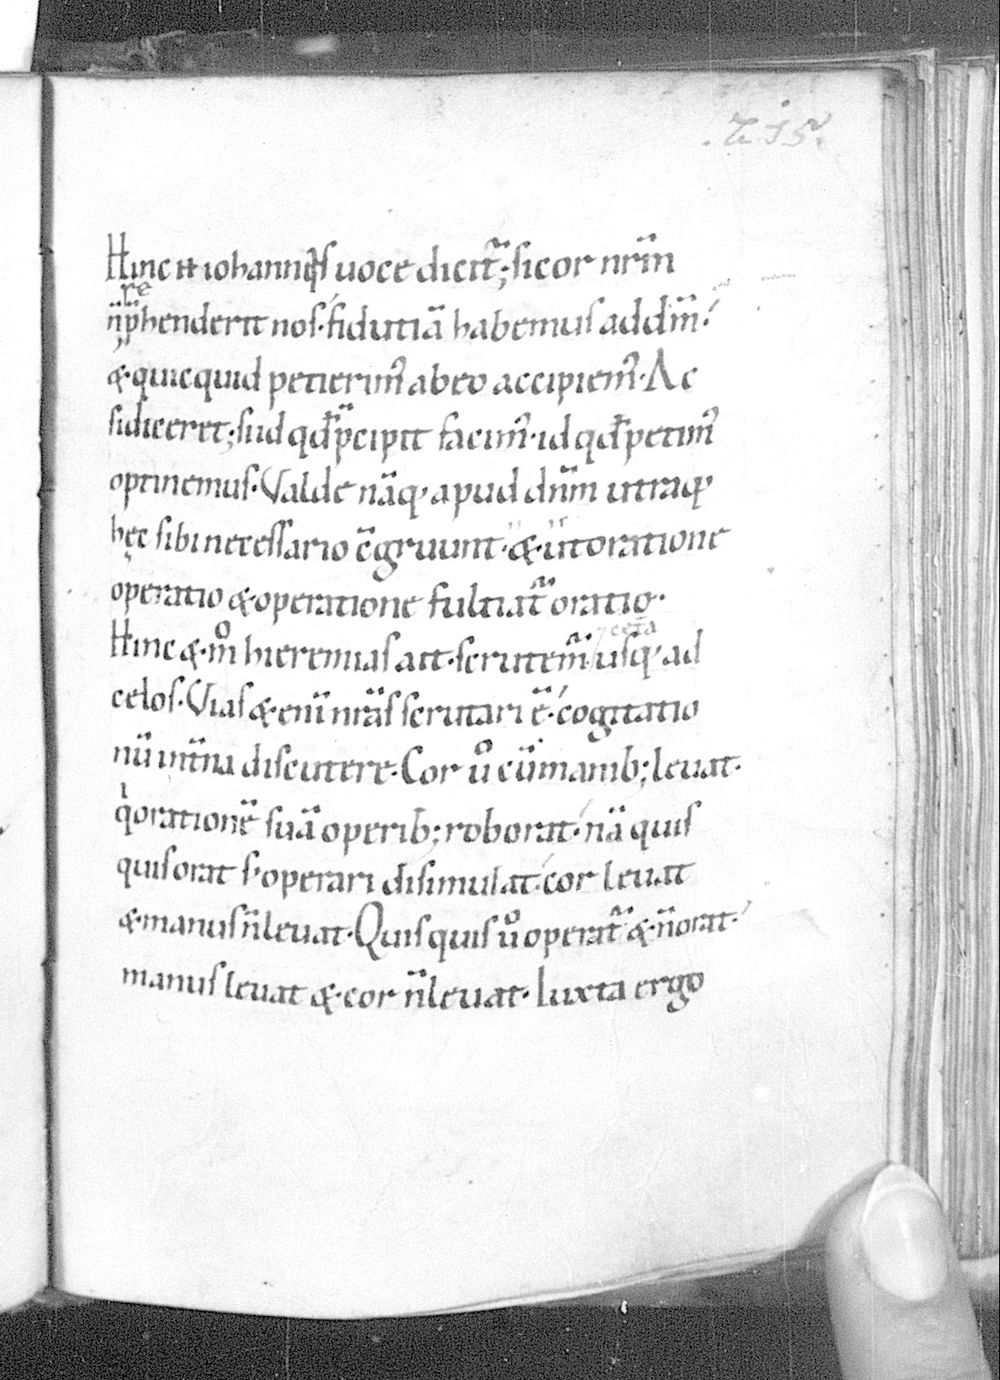 Hinc & iohannis uoce dicit̃; si cor nr̃m
re
n̄ p̱henderit nos· fidutiā habemus ad dm̄·
&·quicquid petierim᷒ ab eo accipiem᷒· Ac
si diceret; si id qđ p̄cipit facim᷒· id qđ petim᷒
optinemus· Valde nāq· apud dn̄m utraq·
hęc sibi necessario c̄gruunt·&·ut oratione
operatio &·operatione fultiat̃ oratio·
Hinc &·m̊ hieremias ait·scrutem̃ usq· ad
celos· Vias &·enī nrās scrutari ē· cogitatio
nū int̃na discutere· Cor ů cū manib; leuat·
q̇ orationē suā operib; roborat· nā quis
quis orat s· operari disimulat· cor leuat
&·manus n̄ leuat· Quisquis ů operat̃ &·n̄ orat·
manus leuat &·cor n̄ leuat· Iuxta ergo